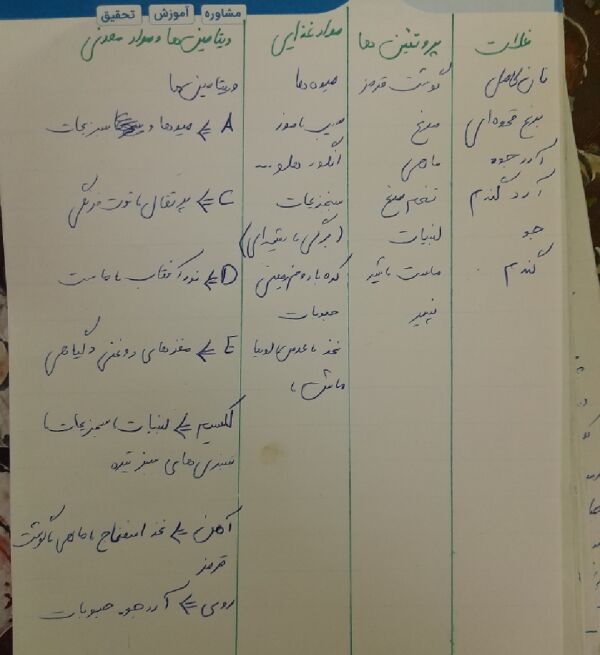 مشاوره | آموزش | تحقیق
غلات
نان کامل
برنج قهوه‌ای
آرد جو
آرد گندم
جو
گندم
پروتئین ها
گوشت قرمز
مرغ
ماهی
تخم مرغ
لبنیات
ماست، شیر
پنیر
مواد غذایی
میوه ها
سیب، موز
انگور، هلو...
سبزیجات
(برگی، ریشه‌ای)
کره بادام زمینی
حبوبات
نخود، عدس، لوبیا
ماش،
ویتامین ها و مواد معدنی
ویتامین ها
A ⇐ میوه‌ها و سبزیجات
C ⇐ پرتقال، توت فرنگی
D ⇐ نور آفتاب، ماست
E ⇐ مغزهای روغنی و گیاهی
کلسیم ⇐ لبنیات، سبزیجات،
سبزی های سبز تیره
آهن ⇐ اسفناج، ماهی، گوشت
قرمز
روی ⇐ آرد جو، حبوبات